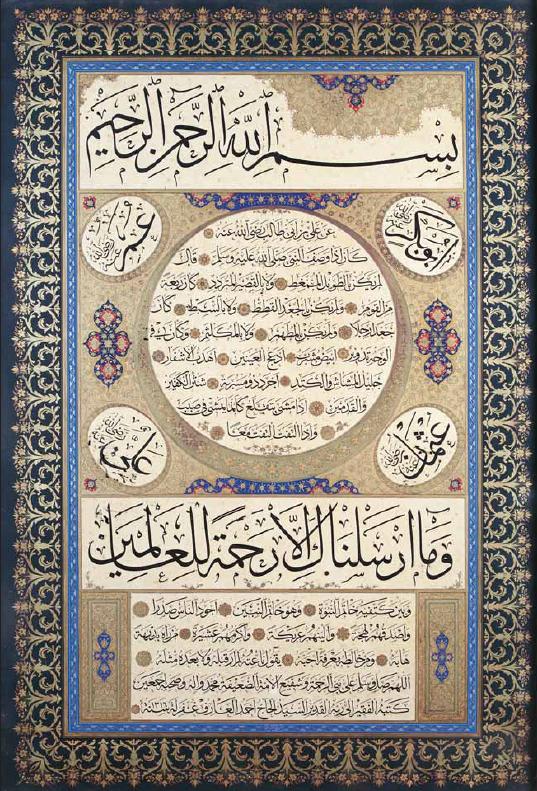 بسم الله الرحمن الرحيم
ابوبكر رضي الله عنه
عمر رضي الله عنه
عن علي بن ابي طالب رضي الله عنه
كان اذا وصف النبي صلى الله عليه وسلم قال
لم يكن بالطويل الممغط ولا بالقصير المتردد كان ربعة
من القوم ولم يكن بالجعد القطط ولا بالسبط كان
جعدا رجلا ولم يكن بالمطهم ولا بالمكلثم وكان في
الوجه تدوير ابيض مشرب ادعج العينين اهدب الاشفار
جليل المشاش والكتد اجرد ذو مسربة شثن الكفين
والقدمين اذا مشى تقلع كانما يمشي في صبب
واذا التفت التفت معا
عثمان رضي الله عنه
علي رضي الله عنه
وما ارسلناك الا رحمة للعالمين
وبين كتفيه خاتم النبوة وهو خاتم النبيين اجود الناس صدرا
واصدقهم لهجة والينهم عريكة واكرمهم عشيرة من رآه بديهة
هابه ومن خالطه معرفة احبه يقول ناعته لم ار قبله ولا بعده مثله
اللهم صل وسلم على نبي الرحمة وشفيع الامة الضعيفة محمد واله وصحبه اجمعين
كتبه الفقير الى ربه القدير السيد الحاج احمد العارف غفر له